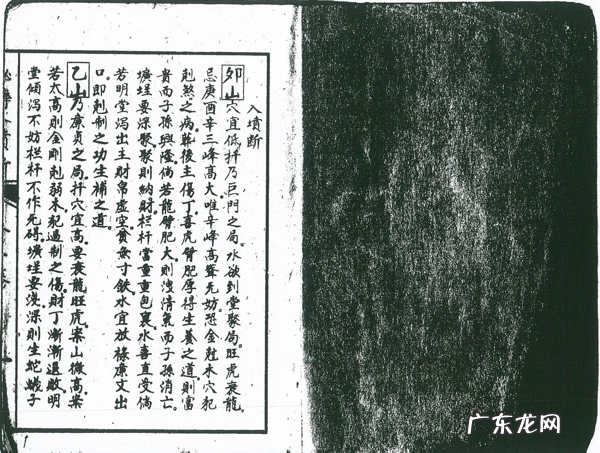 入墳斷
夘山穴宜低扦乃巨門之局水欲到堂聚局旺虎衰龍
忌庚酉辛三峰高大唯辛峰高聳无妨恐金尅木穴犯
尅煞之病葬後主傷丁喜虎臂肥厚得生養之道則富
貴而子孫興隆倘若龍臂肥大則洩情氣而子孫消亡
壙埕要深聚聚則納財栏杆當重重包裹水喜直受倘
若明堂瀉出主財帛虛空貧無寸鉄水宜放祿廉文出
口即剋制之功生補之道
乙山乃廉貞之局扦穴宜高要衰龍旺虎案山微高案
若太高則金剛剋弱木犯過制之傷財丁漸漸退敗明
堂傾瀉不妨栏杆不作无碍壙埕要淺深則生蛇蟻子
广东龙网